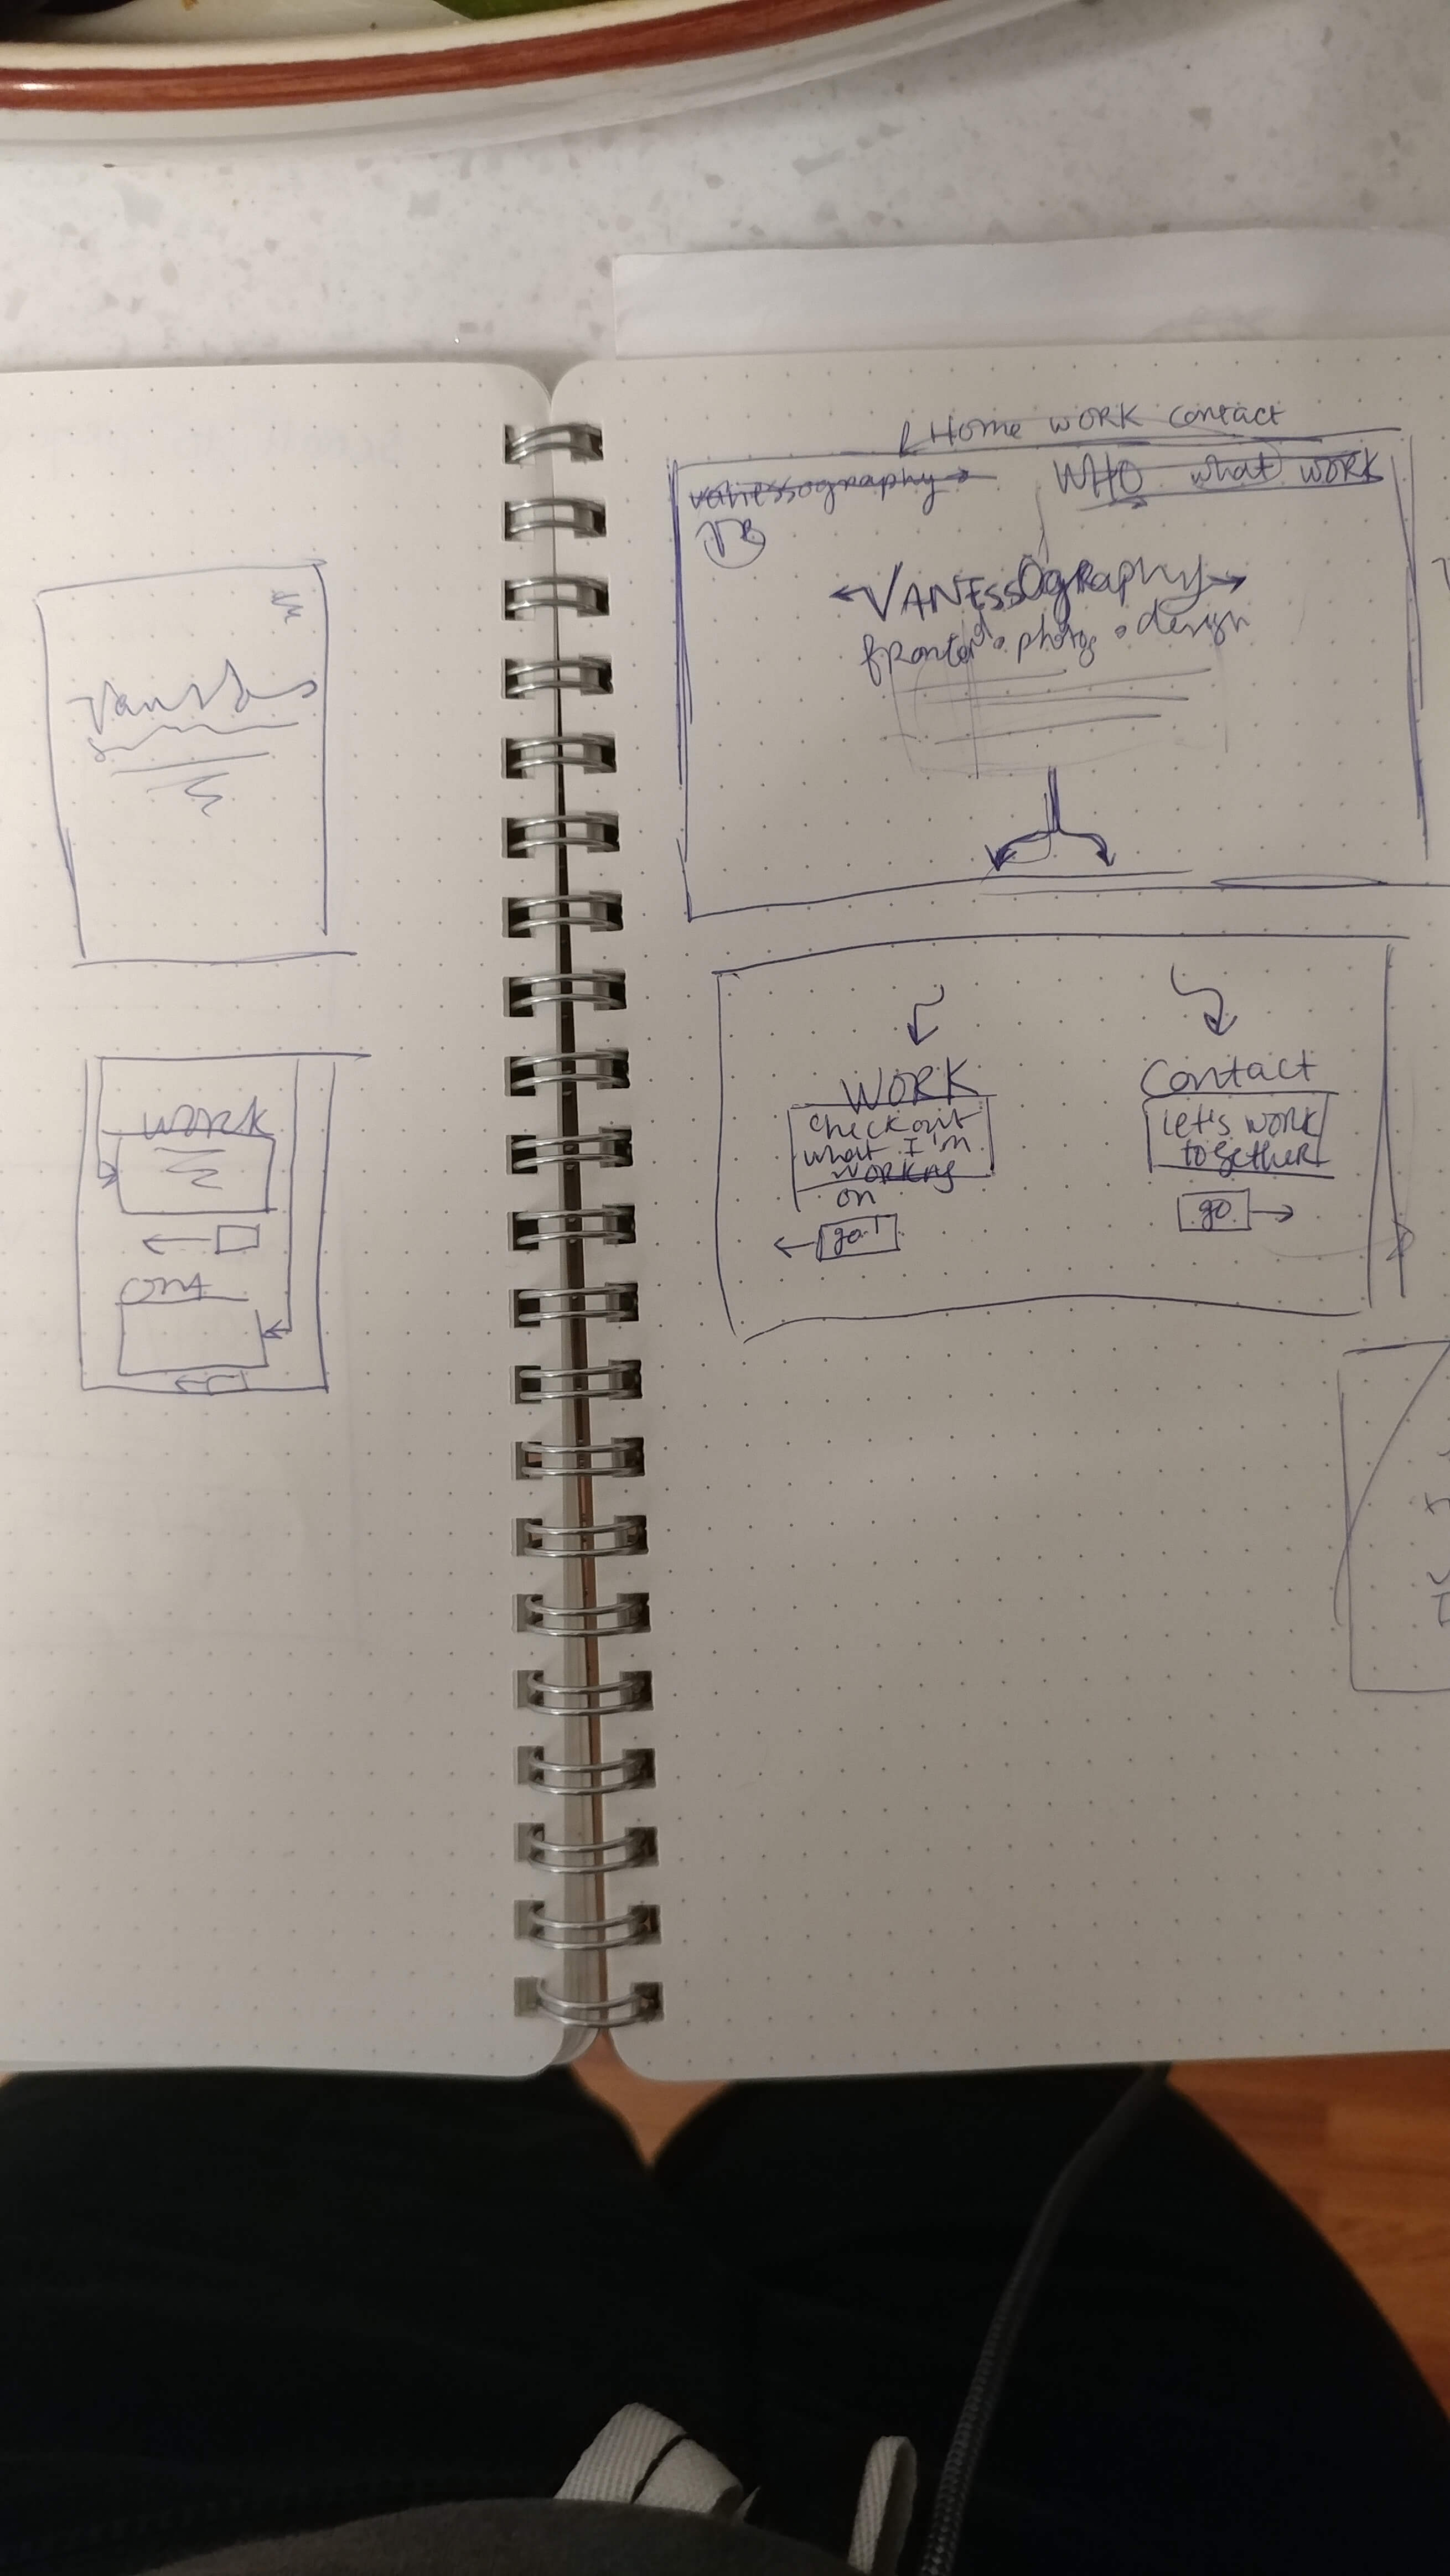 work
Home work contact
vanessography
WHO what work
VB
VANESSOgRAphy
frontend • photog • design
WORK
check out
what I'm
working
on
go!
Contact
let's work
together
go